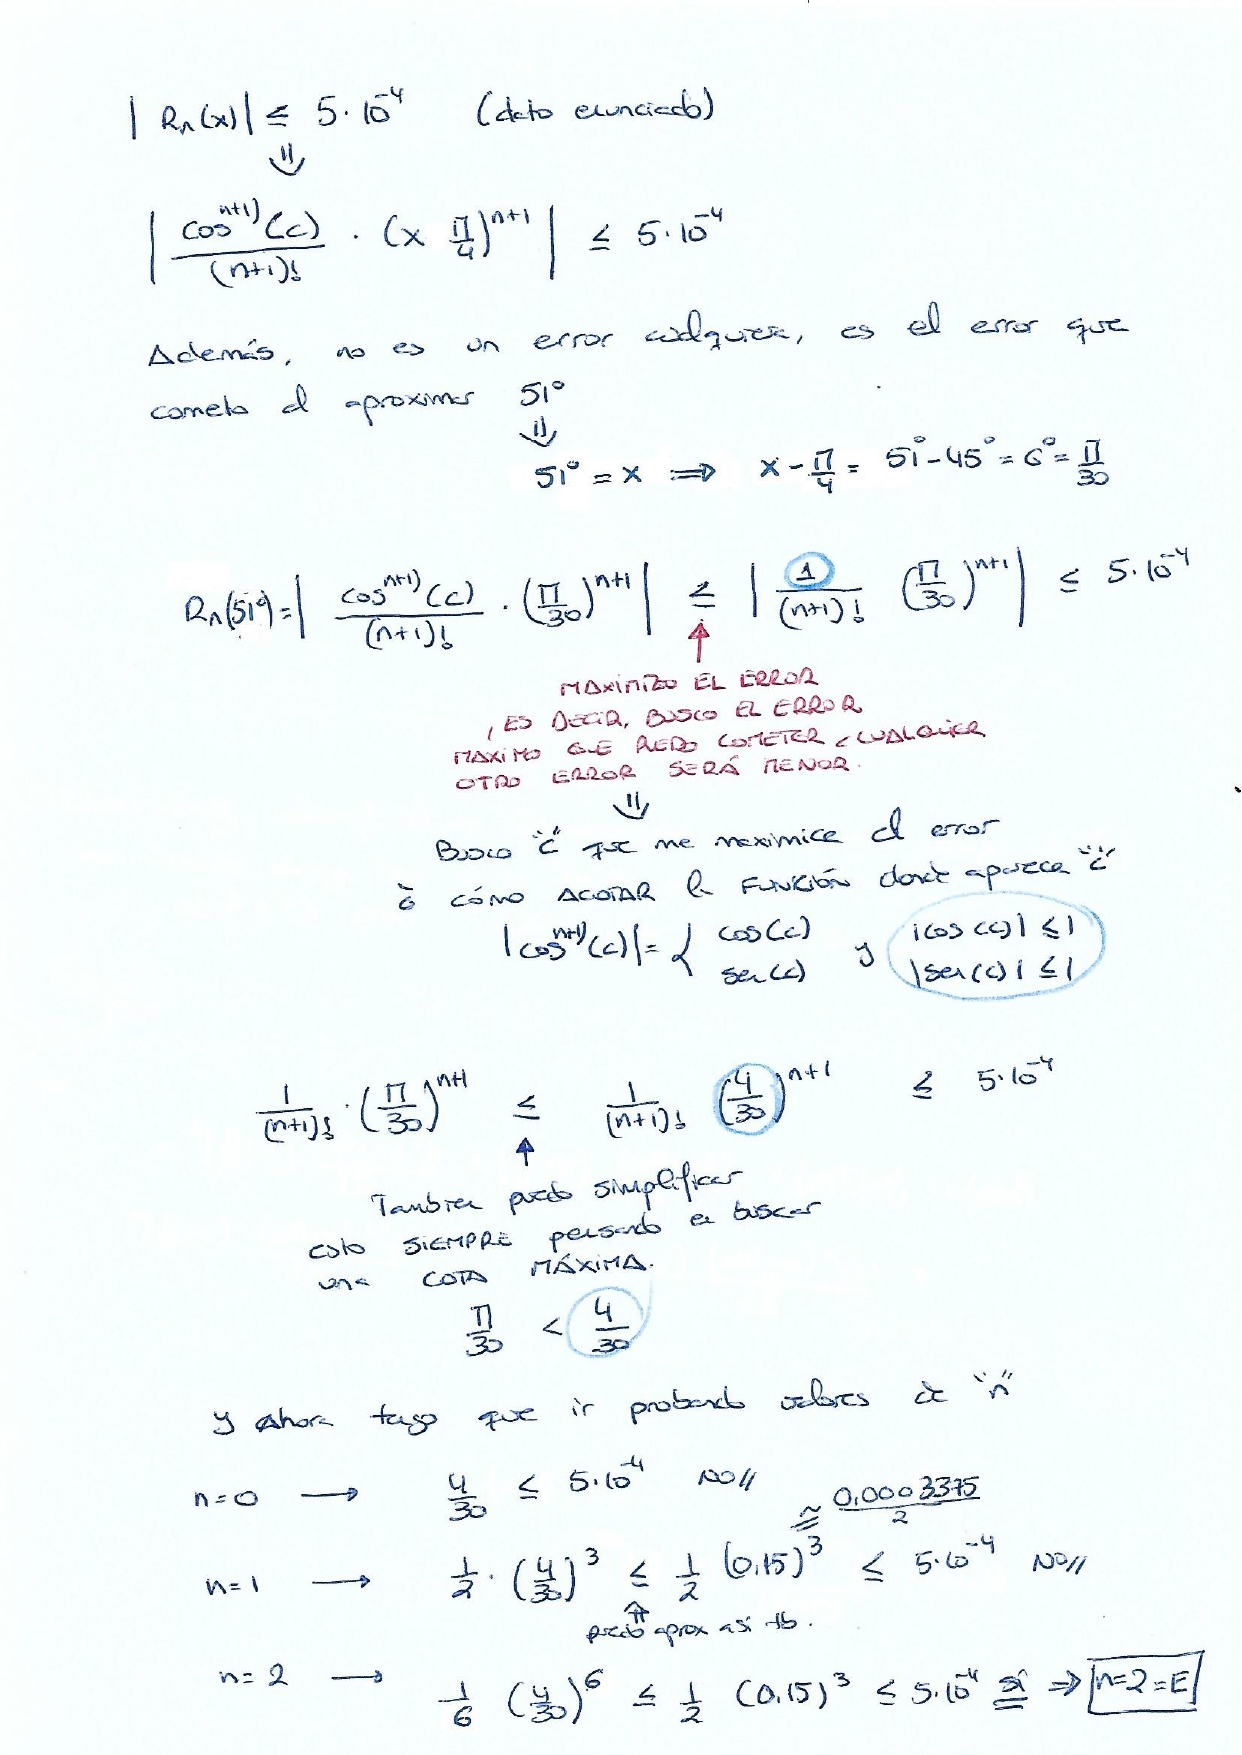 |Rn(x)| ≤ 5·10^-4 (dato enunciado)
⇓
| cos^(n+1)(c) / (n+1)! · (x π/4)^(n+1) | ≤ 5·10^-4
Además, no es un error cualquiera, es el error que
cometo al aproximar 51°
⇓
51° = x ⟹ x - π/4 = 51° - 45° = 6° = π/30
Rn(51°) = | cos^(n+1)(c) / (n+1)! · (π/30)^(n+1) | ≤ | 1/(n+1)! (π/30)^(n+1) | ≤ 5·10^-4
↑
MAXIMIZO EL ERROR
, ES DECIR, BUSCO EL ERROR
MAXIMO QUE PUEDO COMETER, CUALQUIER
OTRO ERROR SERÁ MENOR.
⇓
Busco "c" que me maximice el error
ó cómo ACOTAR la FUNCIÓN donde aparece "c"
|cos^(n+1)(c)| = { cos(c) sen(c) y |cos(c)| ≤ 1 |sen(c)| ≤ 1
1/(n+1)! · (π/30)^(n+1) ≤ 1/(n+1)! (4/30)^(n+1) ≤ 5·10^-4
↑
Tambien puedo simplificar
esto SIEMPRE pensando en buscar
una COTA MÁXIMA.
π/30 < 4/30
y Ahora tengo que ir probando valores de "n"
n=0 ⟶ 4/30 ≤ 5·10^-4 NO//
≈ 0,0003375/2
n=1 ⟶ 1/2 · (4/30)^3 ≤ 1/2 (0,15)^3 ≤ 5·10^-4 NO//
⇑
puedo aprox así tb.
n=2 ⟶ 1/6 (4/30)^6 ≤ 1/2 (0,15)^3 ≤ 5·10^-4 sí ⇒ n=2=E